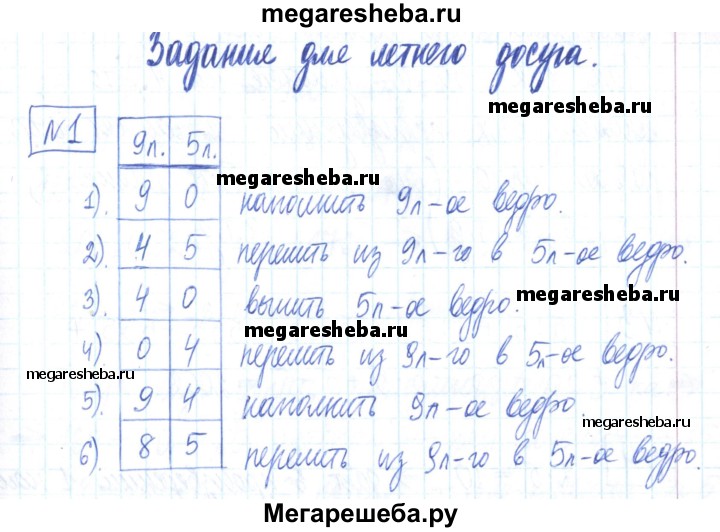 megaresheba.ru
Задание для летнего досуга.
megaresheba.ru
№1
9л. 5л.
megaresheba.ru
1). 9 0 наполнить 9л-ое ведро.
2). 4 5 перелить из 9л-го в 5л-ое ведро.
3). 4 0 вылить 5л-ое ведро.
megaresheba.ru
megaresheba.ru
4) 0 4 перелить из 9л-го в 5л-ое ведро.
megaresheba.ru
5). 9 4 наполнить 9л-ое ведро
megaresheba.ru
6). 8 5 перелить из 9л-го в 5л-ое ведро.
Мегарешеба.ру